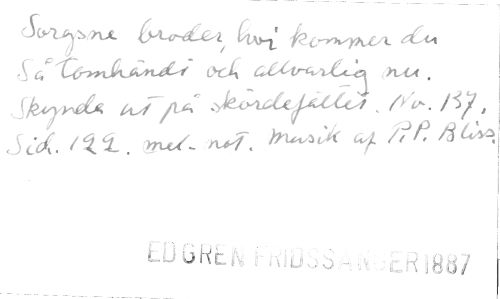 Sorgsne broder, hvi kommer du
Så tomhändt och allvarlig nu.
Skynda ut på skördefältet. No. 137.
Sid. 122. mel-not. Musik af P.P. Bliss.
EDGREN FRIDSSÅNGER 1887